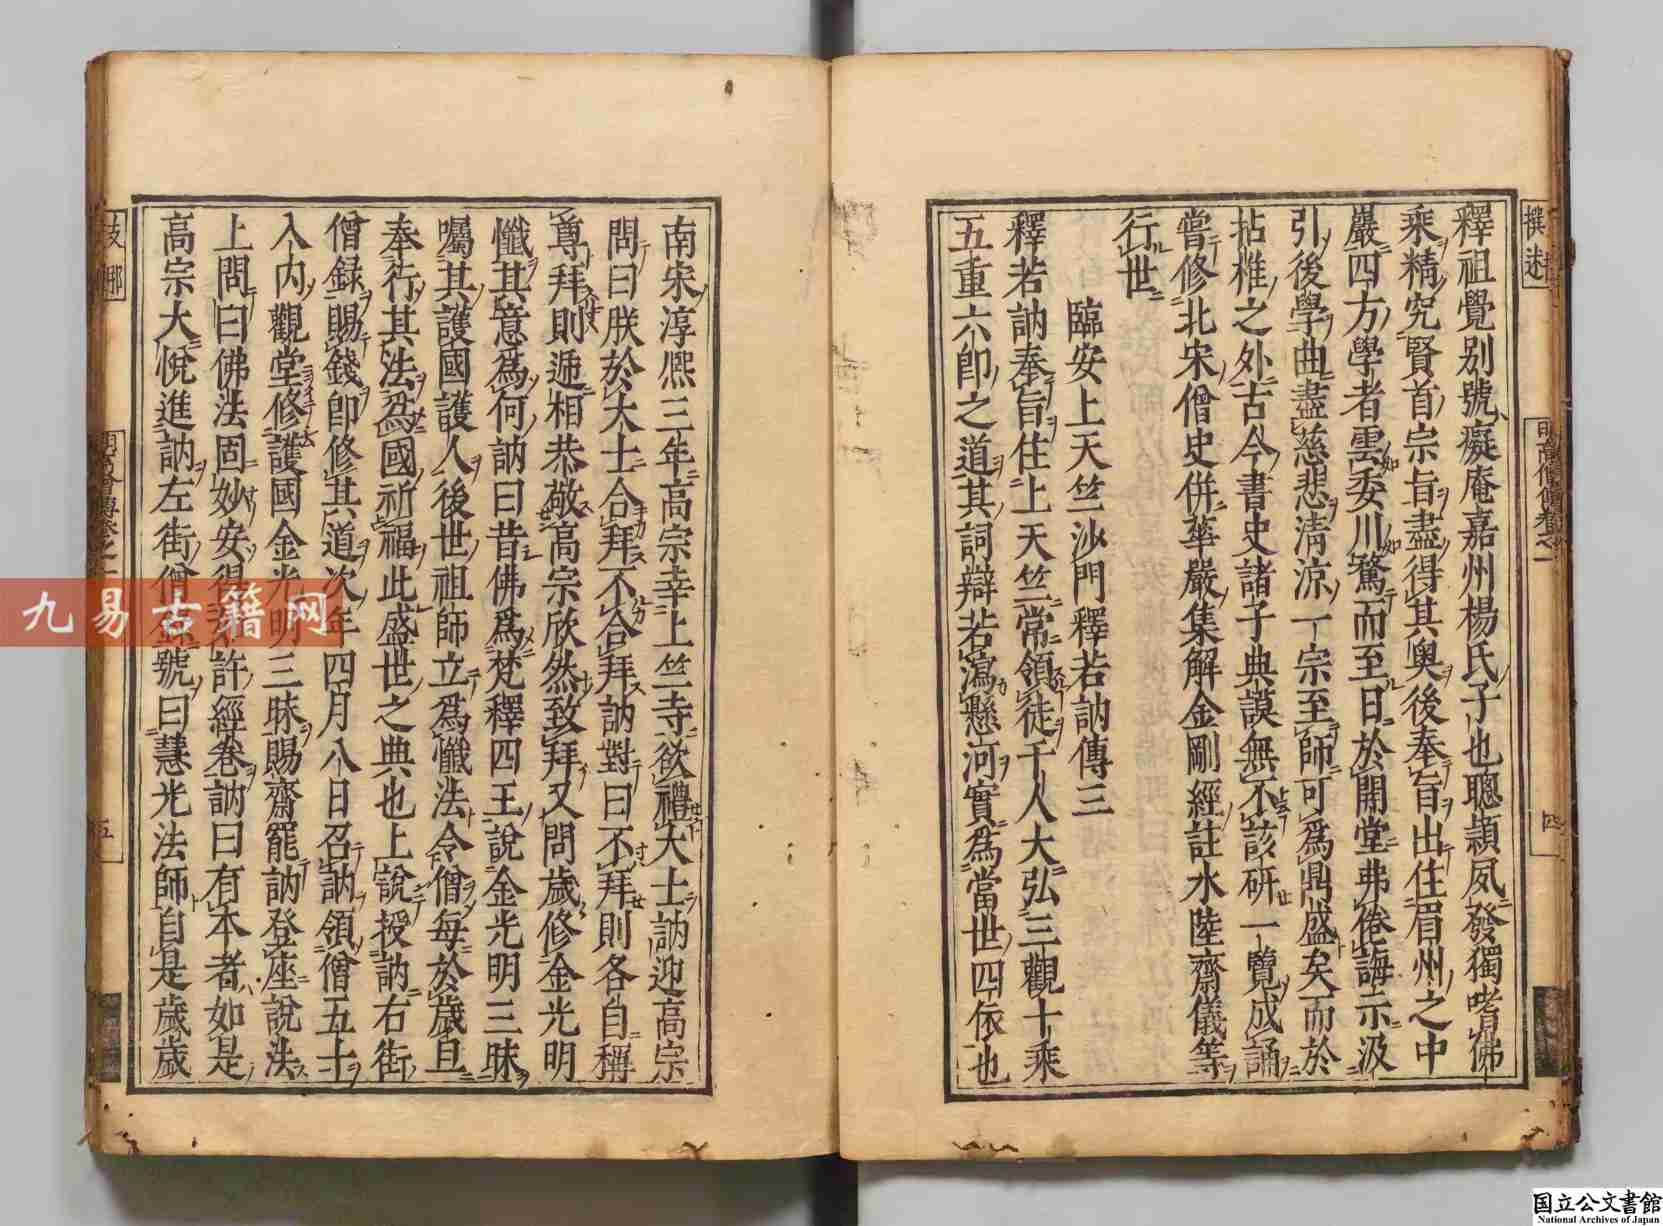 撰述
明高僧傳卷之一
四
釋祖覺別號癡庵嘉州楊氏子也聰頴夙發獨嗜佛
乘精究賢首宗旨盡得其奧後奉旨出住眉州之中
巖四方學者雲委川騖而至日於開堂弗倦誨示汲
引後學曲盡慈悲清涼一宗至師可爲鼎盛矣而於
拈椎之外古今書史諸子典謨無不該研一覽成誦
嘗修北宋僧史併華嚴集解金剛經註水陸齋儀等
行世
臨安上天竺沙門釋若訥傳三
釋若訥奉旨住上天竺常領徒千人大弘三觀十乘
五重六即之道其詞辯若瀉懸河實爲當世四依也
南宋淳熈三年高宗幸上竺寺欲禮大士訥迎高宗
問曰朕於大士合拜不合拜訥對曰不拜則各自稱
尊拜則遞相恭敬高宗欣然致拜又問歲修金光明
懺其意爲何訥曰昔佛爲梵釋四王說金光明三昧
囑其護國護人後世祖師立爲懺法令僧每於歲旦
奉行其法爲國祈福此盛世之典也上說授訥右街
僧録賜錢即修其道次年四月八日召訥領僧五十
入內觀堂修護國金光明三昧賜齋罷訥登座說法
上問曰佛法固妙安得 許經卷訥曰有本者如是
高宗大悅進訥左街僧 號曰慧光法師自是歲歲
支那
明高僧傳卷之一
五
九易古籍网
国立公文書館
National Archives of Japan